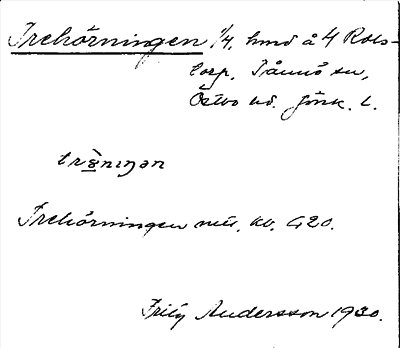 Trehörningen 1/4, hmd å 4 Rols-
torp, Tånnö sn,
Östbo hd. Jönk. L.
träningan
Trehörningen mtl. kb. 420.
Fritz Andersson 1930.